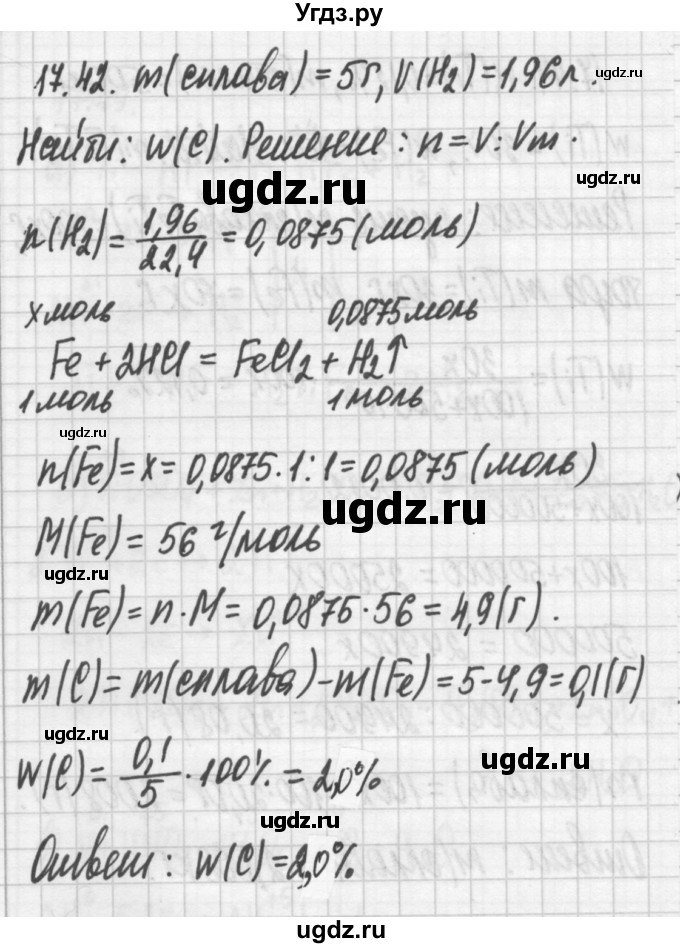 Угдз.ру
17.42. m(сплава) = 5г, V(H₂) = 1,96л.
ugdz.ru
Найти: w(C). Решение: n = V : Vm.
ugdz.ru
n(H₂) = 1,96/22,4 = 0,0875 (моль)
x моль 0,0875 моль
Fe + 2HCl = FeCl₂ + H₂↑
1 моль 1 моль
ugdz.ru
n(Fe) = x = 0,0875 · 1 : 1 = 0,0875 (моль)
ugdz.ru
M(Fe) = 56 г/моль
ugdz.ru
m(Fe) = n · M = 0,0875 · 56 = 4,9 (г).
m(C) = m(сплава) - m(Fe) = 5 - 4,9 = 0,1 (г)
ugdz.ru
ugdz.ru
w(C) = 0,1/5 · 100% = 2,0%
ugdz.ru
Ответ: w(C) = 2,0%